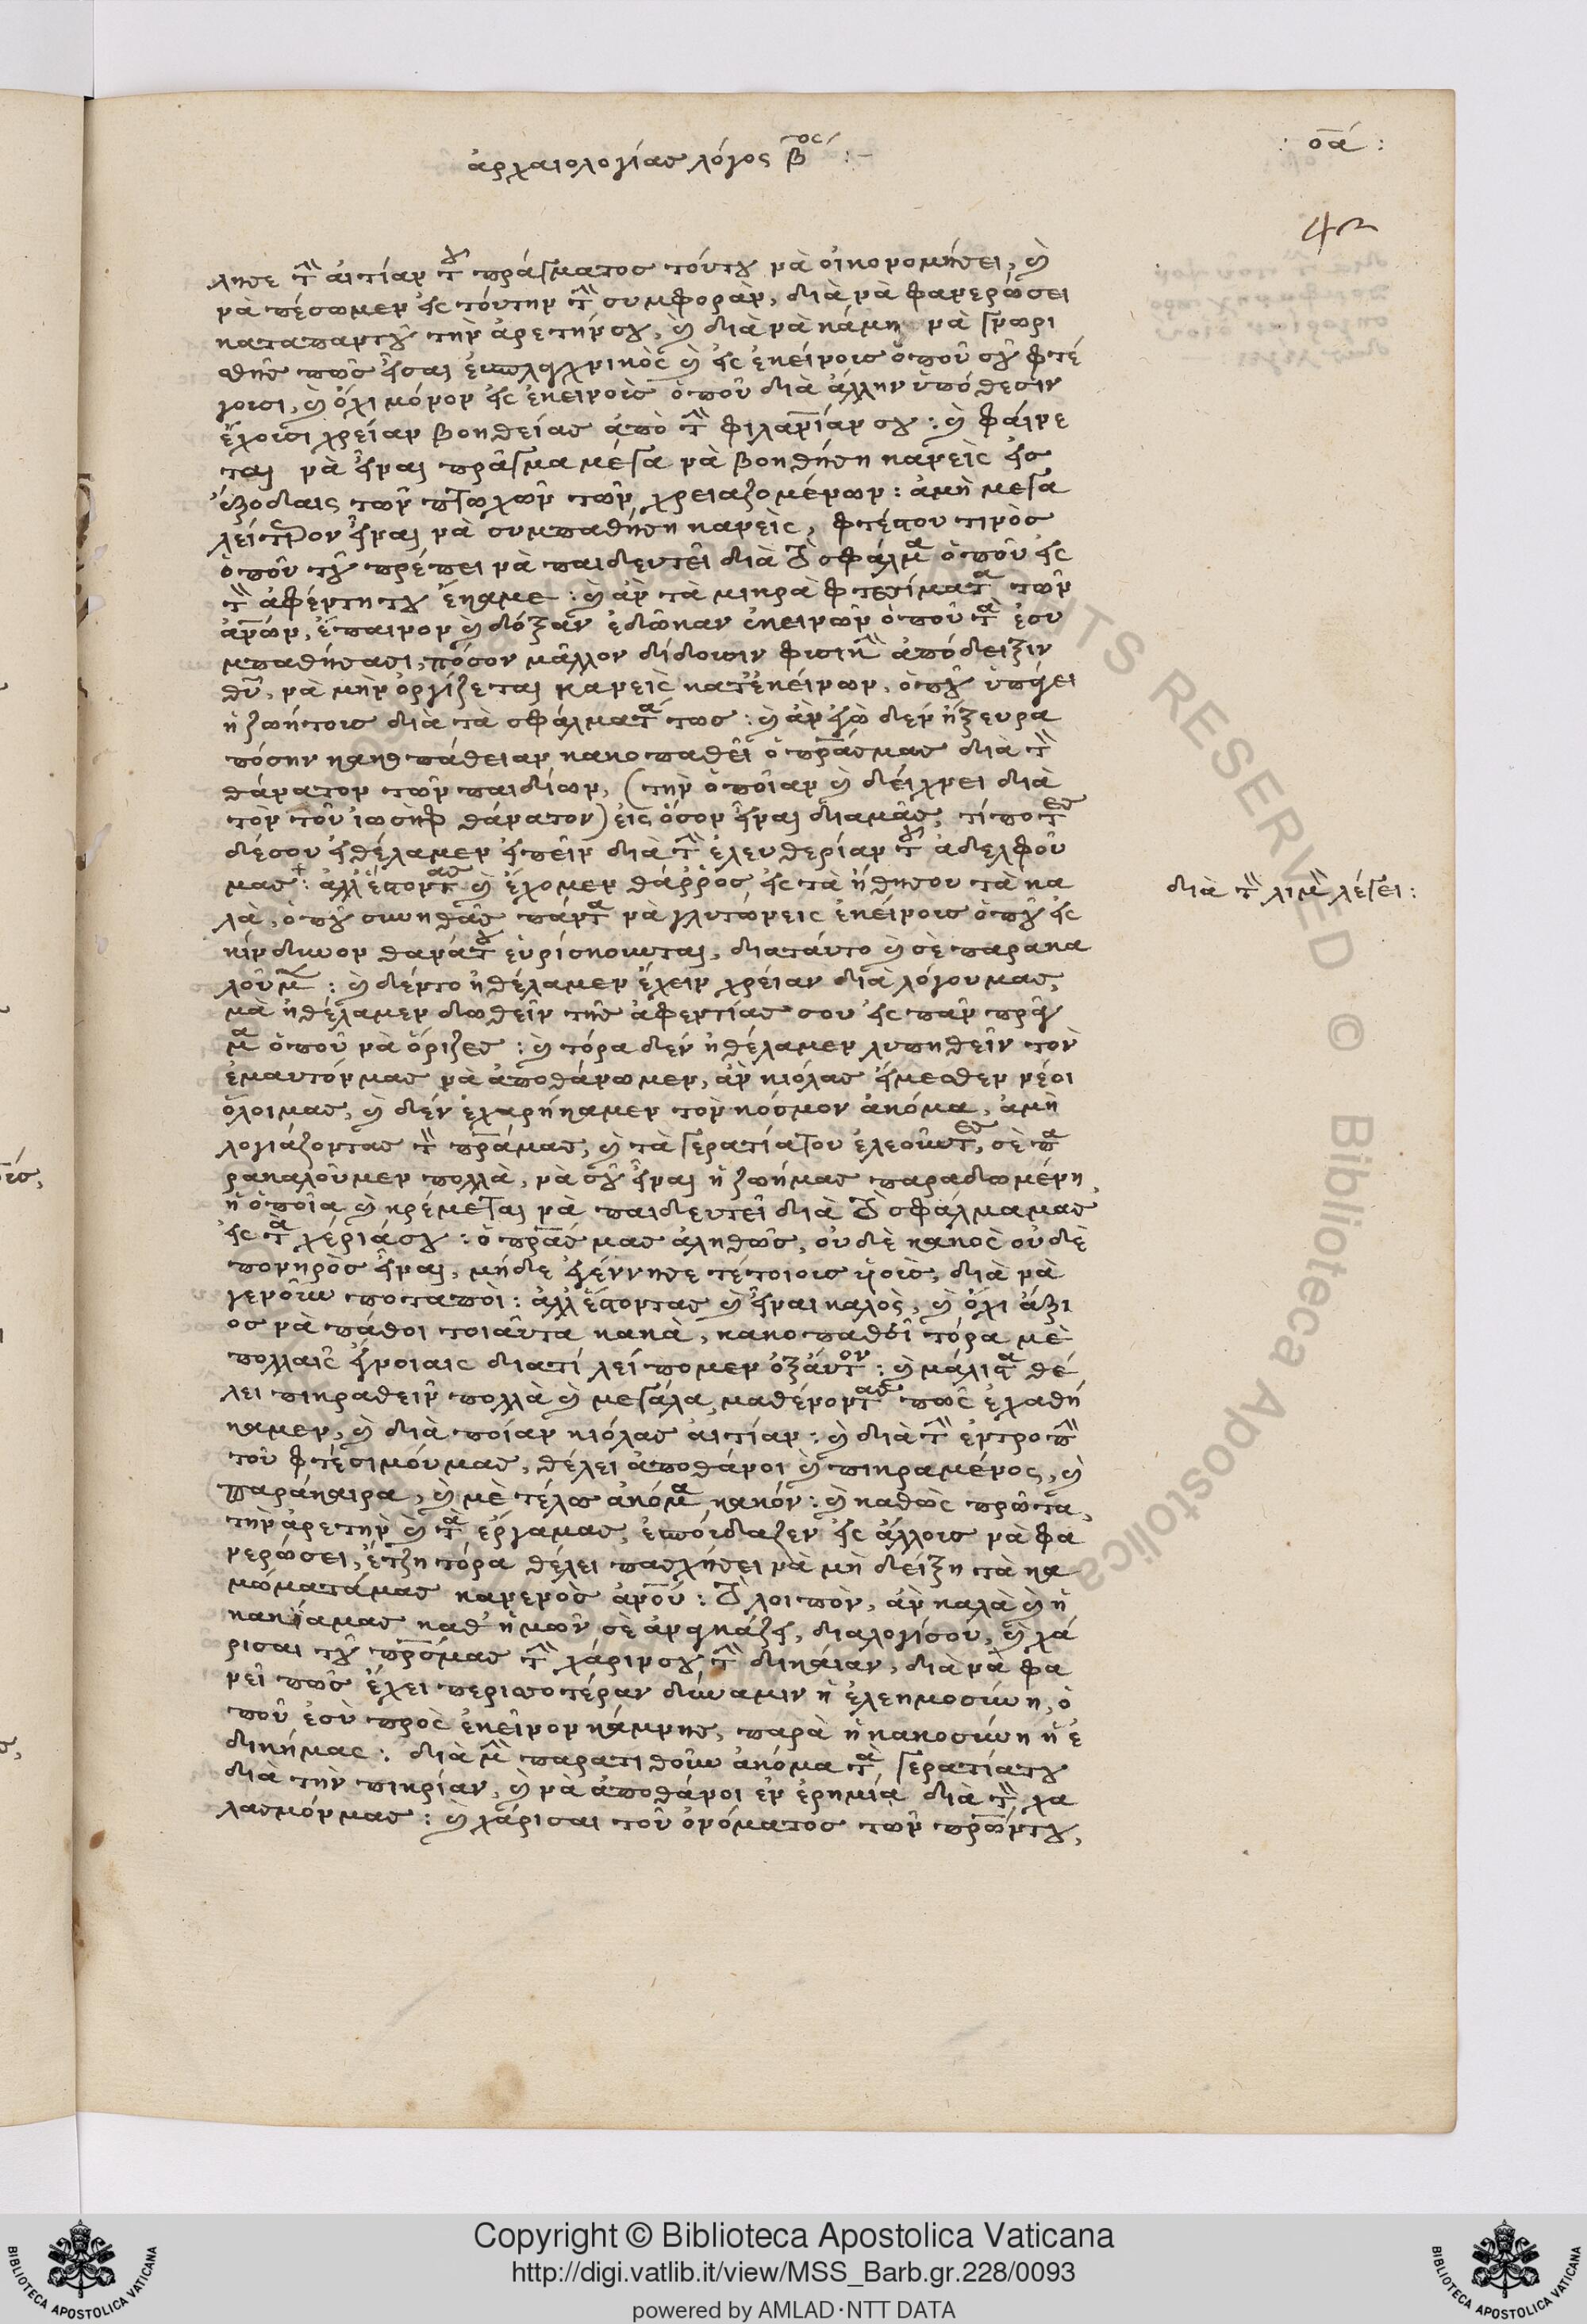 ἀρχαιολογίας λόγος β̅ος :-
: οα :
42
λησε τὴν αἰτίαν τοῦ πράγματος τούτου νὰ οἰκονομήσει, καὶ
νὰ πέσωμεν εἰς τούτην τὴν συμφορὰν, διὰ νὰ φανερώσει
καταπαντοῦ τὴν ἀρετήν σου, καὶ διὰ νὰ κάμη νὰ γνωρι
σθῆς πῶς εἶσαι καὶ εἰς ἐκείνοις ὁποῦ σοῦ φτέ
γοισι, καὶ ὄχι μόνον εἰς ἐκεινοὶς ὁποῦ διὰ ἄλλην ὑπόθεσιν
ἔχοισι χρείαν βοηθείας ἀπὸ τὴν φιλανίαν σου : καὶ φαίνε
ται νὰ εἶναι πρᾶγμα μέγα νὰ βοηθήση κανεὶς εἰς
ἐξοδαις τῶν πτωχῶν τῶν χρειαζομένων : ἀμὴ μεγα
λείτερον εἶναι νὰ συμπαθήση κανεὶς, φτέσου τινὸς
ὁποῦ τοῦ πρέπει νὰ παιδευτεῖ διὰ τὸ σφάλμα ὁποῦ εἰς
τὸν ἀφέντη του ἔκαμε : καὶ ἂν τὰ μικρὰ φτεσίματα τῶν
ἀνῶν, ἔπαινον καὶ δόξαν ἐδῶκαν ἐκεινῶν ὁποῦ τὰ ἐσυ
μπαθήσασι, πόσον μᾶλλον δίδοισιν φισικὴν ἀπόδειξιν
θῦ, νὰ μὴν ὀργίζεται κανεὶς κατ' ἐκείνων, ὁποῦ ὑπάγει
ἡ ζωήτοις διὰ τὰ σφάλματα τως : καὶ ἂν ἐγὼ δὲν ἤξευρα
πόσην κακοπάθειαν κακοπαθεῖ ὁ πρας μας διὰ τὸν
θάνατον τῶν παιδίων, (τὴν ὁποῖαν καὶ δείχνει διὰ
τὸν τοῦ ἰωσὴφ θάνατον) εἰς ὅσον εἶναι διαμᾶς, τίποτες
δέσου ἠθέλαμεν εἰπεῖν διὰ τὴν ἐλευθερίαν τοῦ ἀδελφοῦ
μας : ἀλλ' ἔσοντας καὶ ἔχομεν θάρρος εἰς τὰ ἤθησου τὰ κα
λὰ, ὁποῦ συνηθᾶς πάντα νὰ γλυτώνεις ἐκείνοις ὁποῦ εἰς
κίνδυνον θανάτου εὑρίσκουνται, διατάυτο καὶ σὲ παρακα
λοῦμεν : καὶ δέντο ἠθέλαμεν ἔχειν χρείαν διὰ λόγου μας,
μὰ ἠθέλαμεν δωθεῖν τῆς ἀφεντίας σου εἰς πᾶν πρᾶγ
μα ὁποῦ νὰ ὅριζες : καὶ τόρα δὲν ἠθέλαμεν λυπηθεῖν τὸν
ἐμαυτόν μας νὰ ἀποθάνωμεν, ἂν κιόλας ἤμεσθεν νέοι
ὅλοιμας, καὶ δὲν ἐχαρήκαμεν τὸν κόσμον ἀκόμα, ἀμὴ
λογιάζοντας τὸν πραμας, καὶ τὰ γερατίατου ἐλεοῦντες, σὲ πα
ρακαλοῦμεν πολλὰ, νὰ σοῦ εἶναι ἡ ζωήμας παραδωμένη,
ἡ ὁποῖα καὶ κρέμεται νὰ παιδευτεῖ διὰ τὸ σφάλμαμας
εἰς τὰ χέριάσου : ὁ πρας μας ἀληθῶς, οὐδὲ κακὸς οὐδὲ
πονηρὸς εἶναι, μήδε ἐγέννησε τέτοιοις ὑοὶς, διὰ νὰ
γενοῦν ποταποὶ : ἀλλ' ἔσοντας καὶ εἶναι καλὸς, καὶ ὄχι ἄξι
ος νὰ πάθοι τοιαῦτα κακὰ, κακοπαθεῖ τόρα μὲ
πολλαὶς ἔνοιαις διατί λείπομεν ὀξάυτον : καὶ μάλιστα θέ
λει πικραθεῖν πολλὰ καὶ μεγάλα, μαθένοντας πῶς ἐχαθή
καμεν, καὶ διὰ ποίαν κιόλας αἰτίαν : καὶ διὰ τὴν ἐντροπὴν
τοῦ φτέσιμούμας, θέλει ἀποθάνοι καὶ πικραμένος, καὶ
παράκαιρα, καὶ μὲ τέλος ἀκόμα κακόν : καὶ καθὼς πρῶτα,
τὴν ἀρετὴν καὶ τὰ ἔργαμας, ἐσπούδαζεν εἰς ἄλλοις νὰ φα
νερώσει, ἔτζη τόρα θέλει πασχήσει νὰ μὴ δείξη τὰ κα
μώματάμας κανενὸς ἀνοῦ : Τὸ λοιπὸν, ἂν καλὰ καὶ ἡ
κακίαμας καθ' ἡμῶν σὲ ἀναγκάζει, διαλογίσου, καὶ χά
ρισαι τοῦ πρσμας τὴν χάρινσου τὴν δικαίαν, διὰ νὰ φα
νεῖ πῶς ἔχει περισσοτέραν δύναμιν ἡ ἐλεημοσύνη, ὁ
ποῦ ἐσὺ πρὸς ἐκεῖνον κάμνης, παρὰ ἡ κακοσύνη ἡ ἐ
δικήμας : διὰ μὴν παρατιθοῦν ἀκόμα τὰ γερατίατου
διὰ τὴν πικρίαν, καὶ νὰ ἀποθάνοι ἐν ἐρημία διὰ τὸν χα
λασμόνμας : καὶ χάρισαι τοῦ ὀνόματος τῶν πρωντου,
διὰ τὴν λιμὴν λέγει :
Copyright © Biblioteca Apostolica Vaticana
http://digi.vatlib.it/view/MSS_Barb.gr.228/0093
powered by AMLAD·NTT DATA